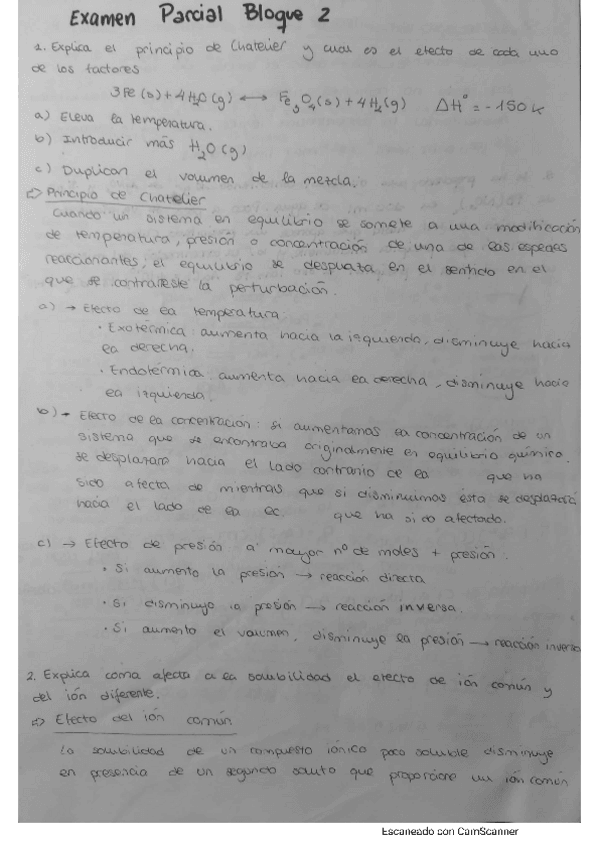 Examen Parcial Bloque 2
1. Explica el principio de Chatelier y cual es el efecto de cada uno
de los factores
3Fe(s) + 4H₂O(g) ⟷ Fe₃O₄(s) + 4H₂(g) ΔH° = -150 K
a) Eleva la temperatura.
b) Introducir más H₂O(g)
c) Duplican el volumen de la mezcla.
⇨ Principio de Chatelier
Cuando un sistema en equilibrio se somete a una modificación
de temperatura, presión o concentración de una de las especies
reaccionantes, el equilibrio se desplaza en el sentido en el
que se contrarreste la perturbación.
a) → Efecto de la temperatura:
· Exotérmica aumenta hacia la izquierda, disminuye hacia
la derecha.
· Endotérmica aumenta hacia la derecha, disminuye hacia
la izquierda.
b) → Efecto de la concentración: si aumentamos la concentración de un
sistema que se encontraba originalmente en equilibrio químico
se desplazara hacia el lado contrario de la que ha
sido afecta de mientras que si disminuimos ésta se desplazará
hacia el lado de la ec. que ha sido afectado.
c) → Efecto de presión a mayor nº de moles + presión.
· Si aumento la presión → reacción directa
· Si disminuyo la presión → reacción inversa.
· Si aumento el volumen, disminuye la presión → reacción inversa
2. Explica como afecta a la solubilidad el efecto de ión común y
del ión diferente.
⇨ Efecto del ión común
La solubilidad de un compuesto iónico poco soluble disminuye
en presencia de un segundo soluto que proporcione un ión común
Escaneado con CamScanner